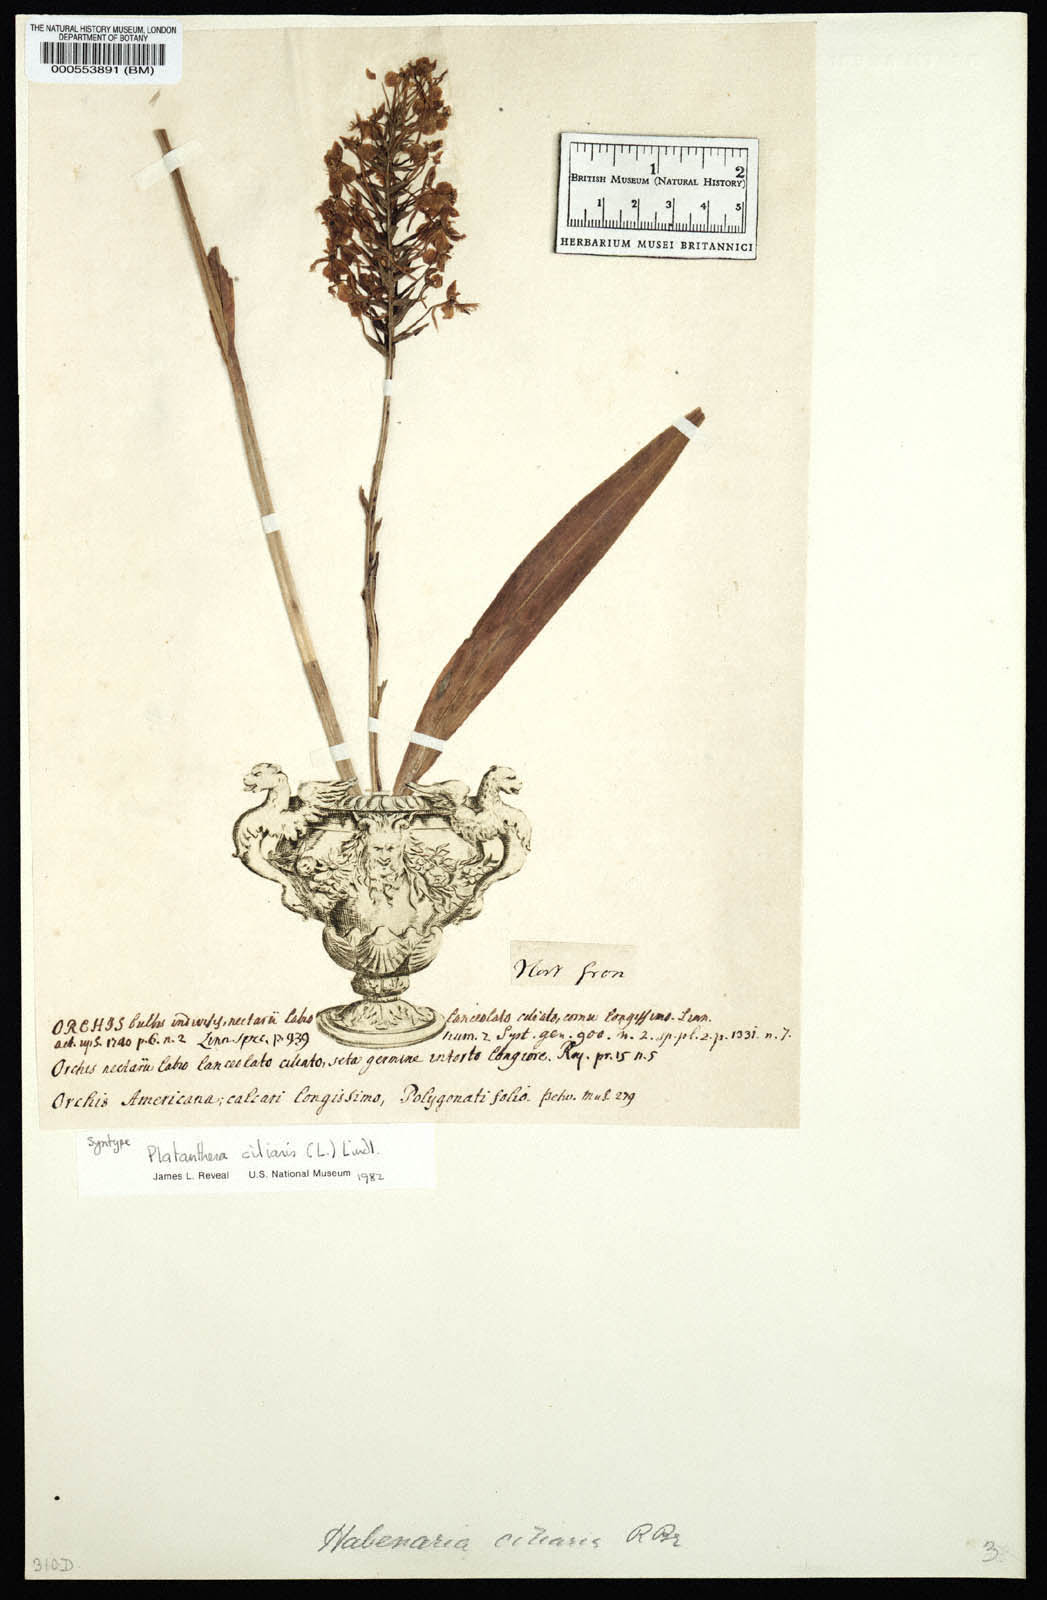 THE NATURAL HISTORY MUSEUM, LONDON
DEPARTMENT OF BOTANY
000553891 (BM)
1 2
BRITISH MUSEUM (NATURAL HISTORY)
1 2 3 4 5
HERBARIUM MUSEI BRITANNICI
Hort
ORCHIS bulbis indivisis, nectarii labio lanceolato ciliato, cornu longissimo. Linn.
act. ups. 1740 p. 6. n. 2 Linn. spec. p. 939 num. 2 Syst. gen. 900. n. 2. sp. pl. 2. p. 1331. n. 7.
Orchis nectarii labio lanceolato ciliato, seta germine intorto longiore. Roy. pr. 15 n. 5
Orchis Americana, calcari longissimo, Polygonati folio. Petiv. Mus. 279
Syntype
Platanthera ciliaris (L.) Lindl.
James L. Reveal U.S. National Museum 1982
Habenaria ciliaris R Br
310.D
3